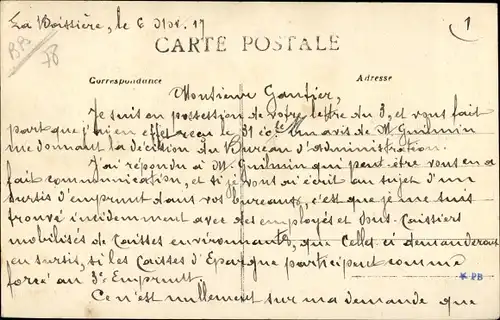 La Boissière, le 6 Nov. 17
1
BB
78
CARTE POSTALE
Correspondance
Adresse
Monsieur Gautier,
Je suis en possession de votre lettre du 3, et vous fait
part que j'ai en effet reçu le 31 8bre un avis de M. Guilmin
me donnant la décision du Bureau d'administration.
J'ai répondu à M. Guilmin qui peut-être vous en a
fait communication, et si je vous ai écrit au sujet d'un
sursis d'emprunt dans vos bureaux, c'est que je me suis
trouvé incidemment avec des employés et Sous-Caissiers
mobilisés de Caisses environnantes, que Celles-ci demanderont
en sursis, si les Caisses d'Epargne participent comme
forcé au 3e Emprunt.
* PB
Ce n'est nullement sur ma demande que